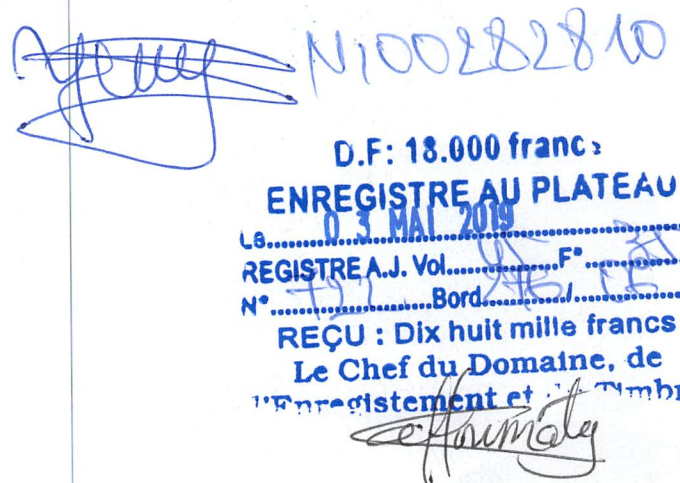 N100282810
D.F: 18.000 francs
ENREGISTRE AU PLATEAU
Le.......... 03 MAI 2019
REGISTRE A.J. Vol....... 45 .......F°.......
N°....... 722 .......Bord....... 276 ......./.......
REÇU : Dix huit mille francs
Le Chef du Domaine, de
l'Enregistement et du Timbr